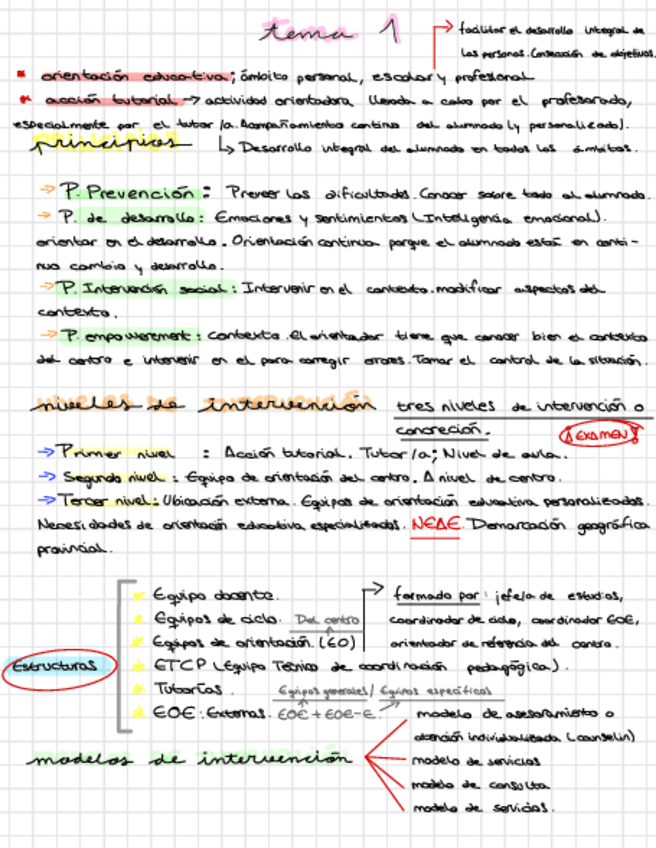 tema 1
facilitar el desarrollo integral de
las personas. Consecución de objetivos.
orientación educativa; ámbito personal, escolar y profesional
acción tutorial → actividad orientadora llevada a cabo por el profesorado,
especialmente por el tutor/a. Acompañamiento continuo del alumnado (y personalizado).
principios
↳ Desarrollo integral del alumnado en todos los ámbitos.
→ P. Prevención: Preveer las dificultades. Conocer sobre todo al alumnado.
→ P. de desarrollo: Emociones y sentimientos (Inteligencia emocional).
orientar en el desarrollo. Orientación continua porque el alumnado está en conti-
nuo cambio y desarrollo.
→ P. Intervención social: Intervenir en el contexto. modificar aspectos del
contexto.
→ P. empowerement: contexto. el orientador tiene que conocer bien el contexto
del centro e intervenir en el para corregir errores. Tomar el control de la situación.
niveles de intervención
tres niveles de intervención o
concreción.
¡EXAMEN!
→ Primer nivel : Acción tutorial. Tutor/a; Nivel de aula.
→ Segundo nivel: Equipo de orientación del centro. A nivel de centro.
→ Tercer nivel: Ubicación externa. Equipos de orientación educativa personalizados.
Necesidades de orientación educativa especializadas. NEAE. Demarcación geográfica
provincial.
Estructuras
Equipo docente.
Equipos de ciclo. Del centro
Equipos de orientación. (EO)
ETCP (Equipo Técnico de coordinación pedagógica).
Tutorías. Equipos generales/ Equipos específicos
EOE: Externas. EOE + EOE-E.
formado por: jefe/a de estudios,
coordinador de ciclo, coordinador EOE,
orientador de referencia del centro.
modelos de intervención
modelo de asesoramiento o
atención individualizada (counselin)
modelo de servicios
modelo de consulta
modelo de servicios.